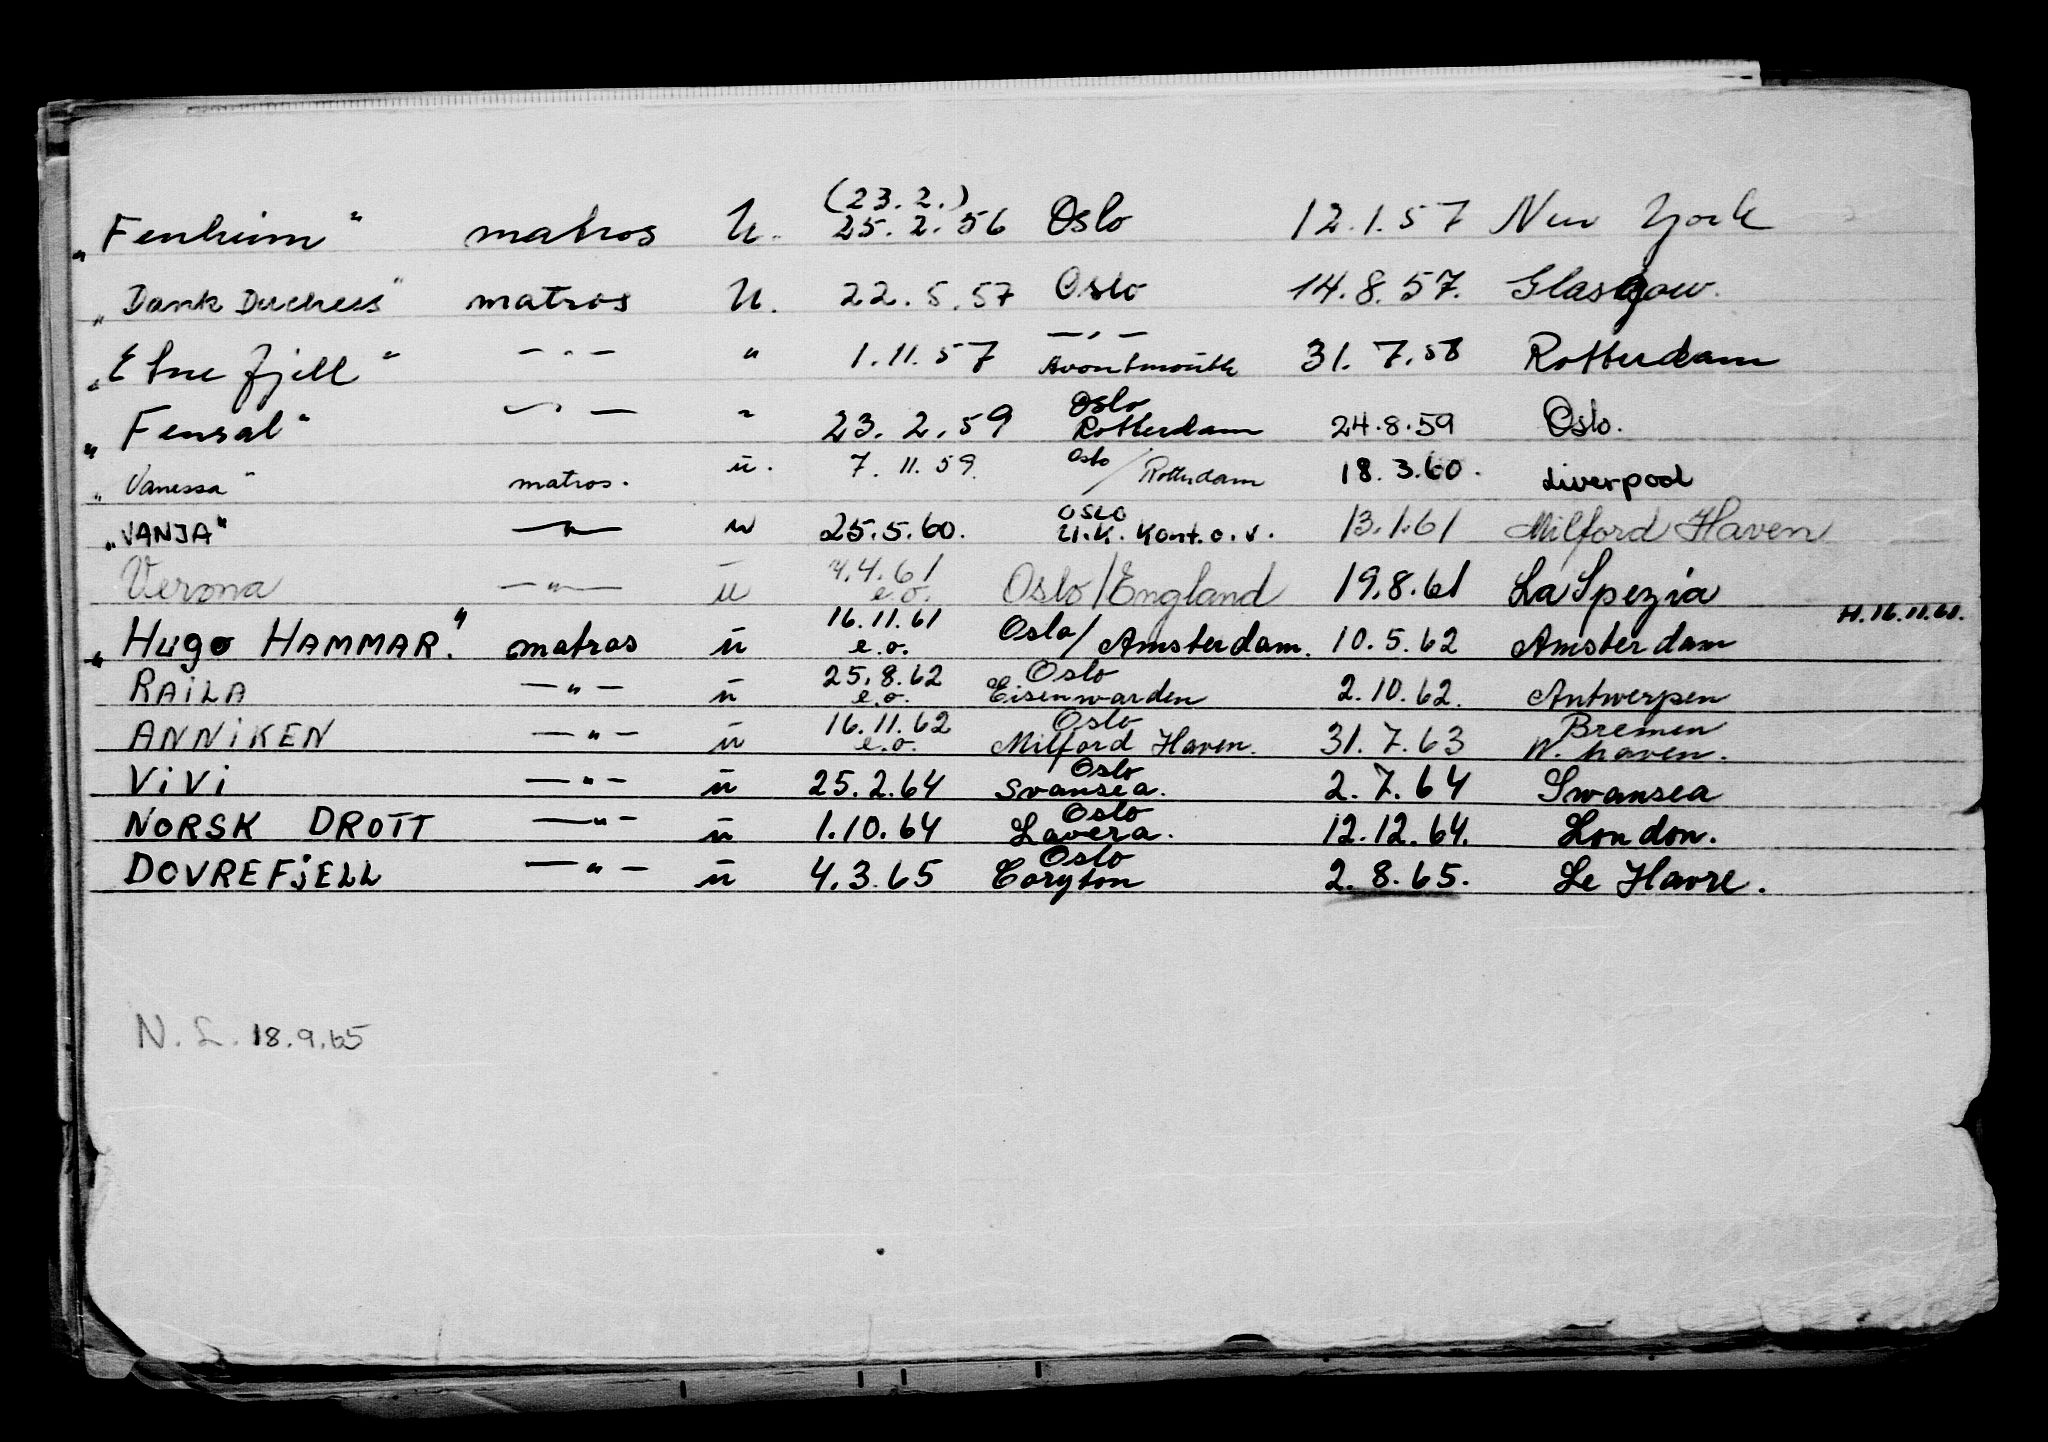 (23.2.)
"Fenheim" matros U. 25.2.56 Oslo 12.1.57 New York
"Dank Duchess" matros U. 22.5.57 Oslo 14.8.57. Glasgow.
— " —
"Etnefjell" — " — " 1.11.57 Avontmouth 31.7.58 Rotterdam
Oslo
"Fensal" — " — " 23.2.59 Rotterdam 24.8.59 Oslo.
"Vanessa" matros. u. 7.11.59. Oslo / Rotterdam 18.3.60. Liverpool
Oslo
"VANJA" — " — u 25.5.60. U.K. Kont.o.v. 13.1.61 Milford Haven
Verona — " — u 4.4.61 Oslo/England 19.8.61 La Spezia
e.o.
H.16.11.61.
16.11.61
"Hugo HAMMAR." matros u e.o. Oslo/Amsterdam. 10.5.62 Amsterdam
25.8.62 Oslo
RAILA — " — u e.o. Eisenwarden 2.10.62. Antwerpen
16.11.62 Oslo Bremen
ANNIKEN — " — u e.o. Milford Haven. 31.7.63 W. haven.
Oslo
ViVi — " — u 25.2.64 Svansea. 2.7.64 Swansea
Oslo
NORSK DROTT — " — u 1.10.64 Lavera. 12.12.64. London.
Oslo
DOVREFJELL — " — u 4.3.65 Coryton 2.8.65. Le Havre.
N.L. 18.9.65